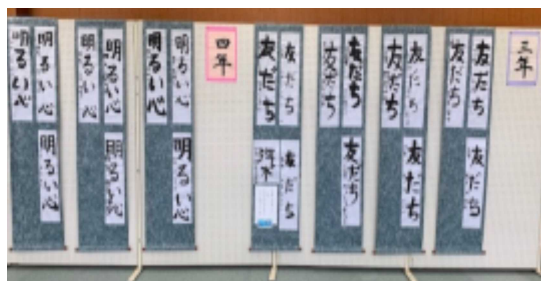 三年
友だち
友だち
友だち
友だち
友だち
友だち
友だち
友だち
友だち
友だち
友だち
友だち
四年
明るい心
明るい心
明るい心
明るい心
明るい心
明るい心
明るい心
明るい心
明るい心